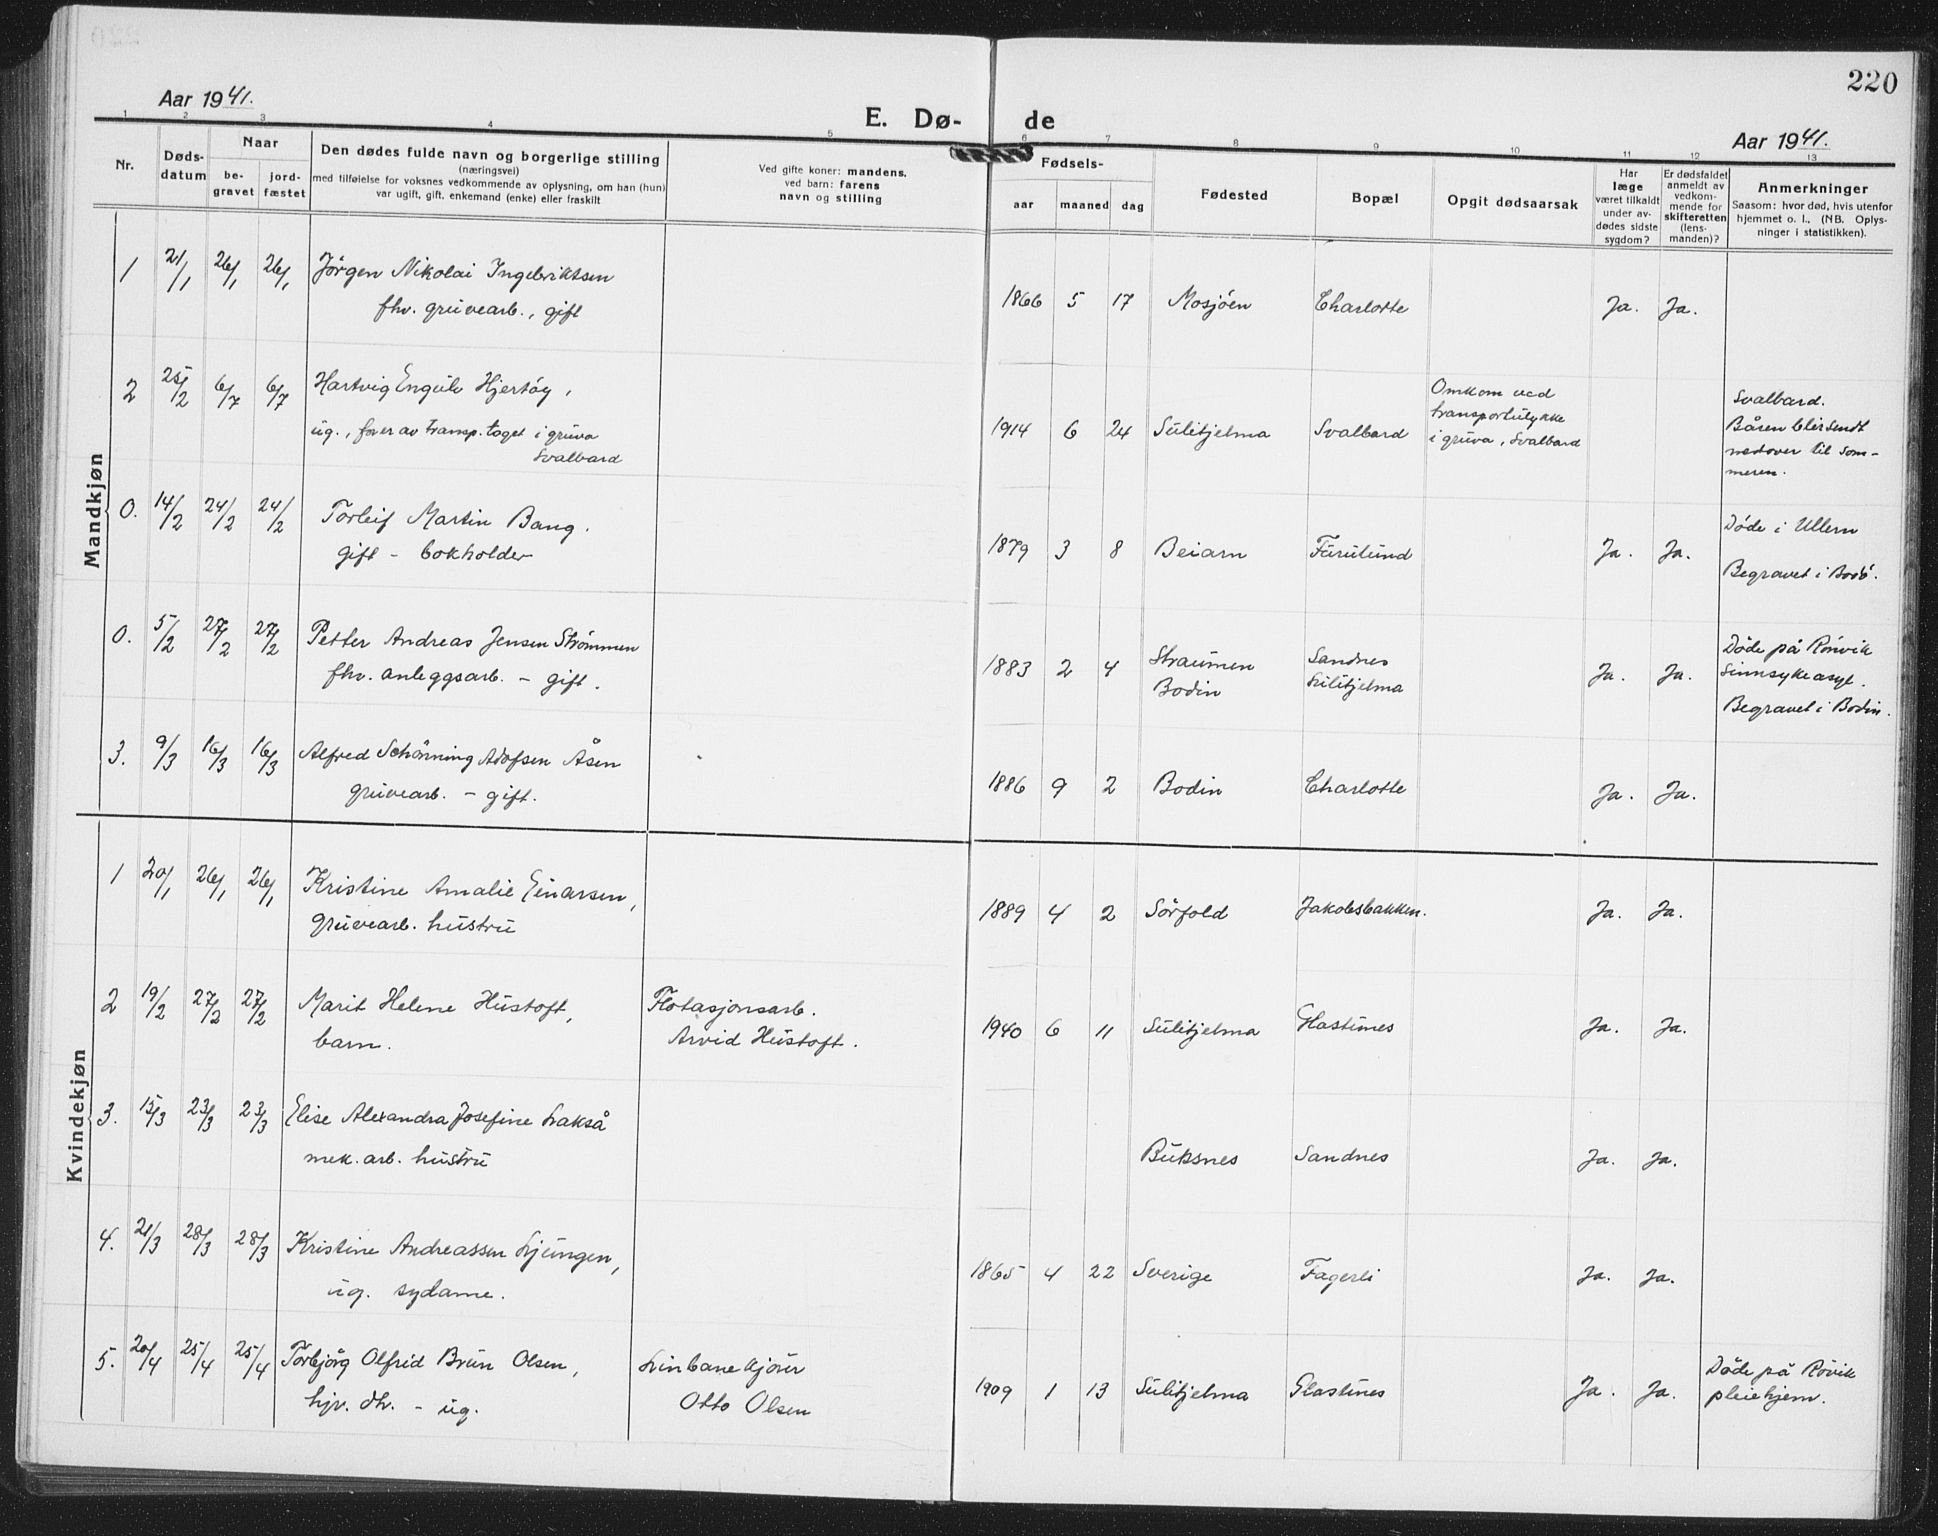 220
Aar 1941.
E. Dø- de
Aar 1941.
1 2 3 4 5 6 7 8 9 10 11 12 13
Nr.
Døds-
datum
Naar
be-
gravet
jord-
fæstet
Den dødes fulde navn og borgerlige stilling
(næringsvei)
med tilføielse for voksnes vedkommende av oplysning, om han (hun)
var ugift, gift, enkemand (enke) eller fraskilt
Ved gifte koner: mandens,
ved barn: farens
navn og stilling
Fødsels-
aar maaned dag
Fødested
Bopæl
Opgit dødsaarsak
Har
læge
været tilkaldt
under av-
dødes sidste
sygdom?
Er dødsfaldet
anmeldt av
vedkom-
mende for
skifteretten
(lens-
manden)?
Anmerkninger
Saasom: hvor død, hvis utenfor
hjemmet o. l., (NB. Oplys-
ninger i statistikken).
Mandkjøn
1 21/1 26/1 26/1 Jörgen Nikolai Ingebriktsen
fhv. gruvearb., gift
1866 5 17 Mosjöen Charlotte Ja. Ja.
2 25/2 6/7 6/7 Hartvig Engelv Hjertöy,
ug., fører av transp.toget i gruva
Svalbard
1914 6 24 Sulitjelma Svalbard
Omkom ved
transportulykke
i gruva, Svalbard
Svalbard.
Båren blir sendt
nedover til som-
meren.
0. 14/2 24/2 24/2 Torleif Martin Bang.
gift - bokholder
1879 3 8 Beiarn Furulund Ja. Ja.
Döde i Ullern
Begravet i Bodö.
0. 5/2 27/2 27/2 Petter Andreas Jensen Strömmen
fhv. anleggsarb. - gift.
1883 2 4 Straumen
Bodin
Sandnes
Sulitjelma
Ja. Ja.
Döde på Rönvik
Sinnsykeasyl.
Begravet i Bodin.
3. 9/3 16/3 16/3 Alfred Schönning Adofsen Åsen
gruvearb. - gift.
1886 9 2 Bodin Charlotte Ja. Ja.
Kvindekjøn
1 20/1 26/1 26/1 Kristine Amalie Einarsen,
gruvearb. hustru
1889 4 2 Sörfold Jakobsbakken. Ja. Ja.
2 19/2 27/2 27/2 Marit Helene Hustoft,
barn.
Flotasjonsarb.
Arvid Hustoft.
1940 6 11 Sulitjelma Glastunes Ja. Ja.
3. 15/3 23/3 23/3 Elise Alexandra Josefine Lakså
mek. arb. hustru
Buksnes Sandnes Ja. Ja.
4. 21/3 28/3 28/3 Kristine Andreassen Ljungen,
ug. sydame.
1865 4 22 Sverige Fagerli Ja. Ja.
5. 20/4 25/4 25/4 Torbjörg Olfrid Brun Olsen,
hjv. dtr. - ug.
Linbanekjörer
Otto Olsen
1909 1 13 Sulitjelma Glastunes Ja. Ja.
Döde på Rövik
pleiehjem.